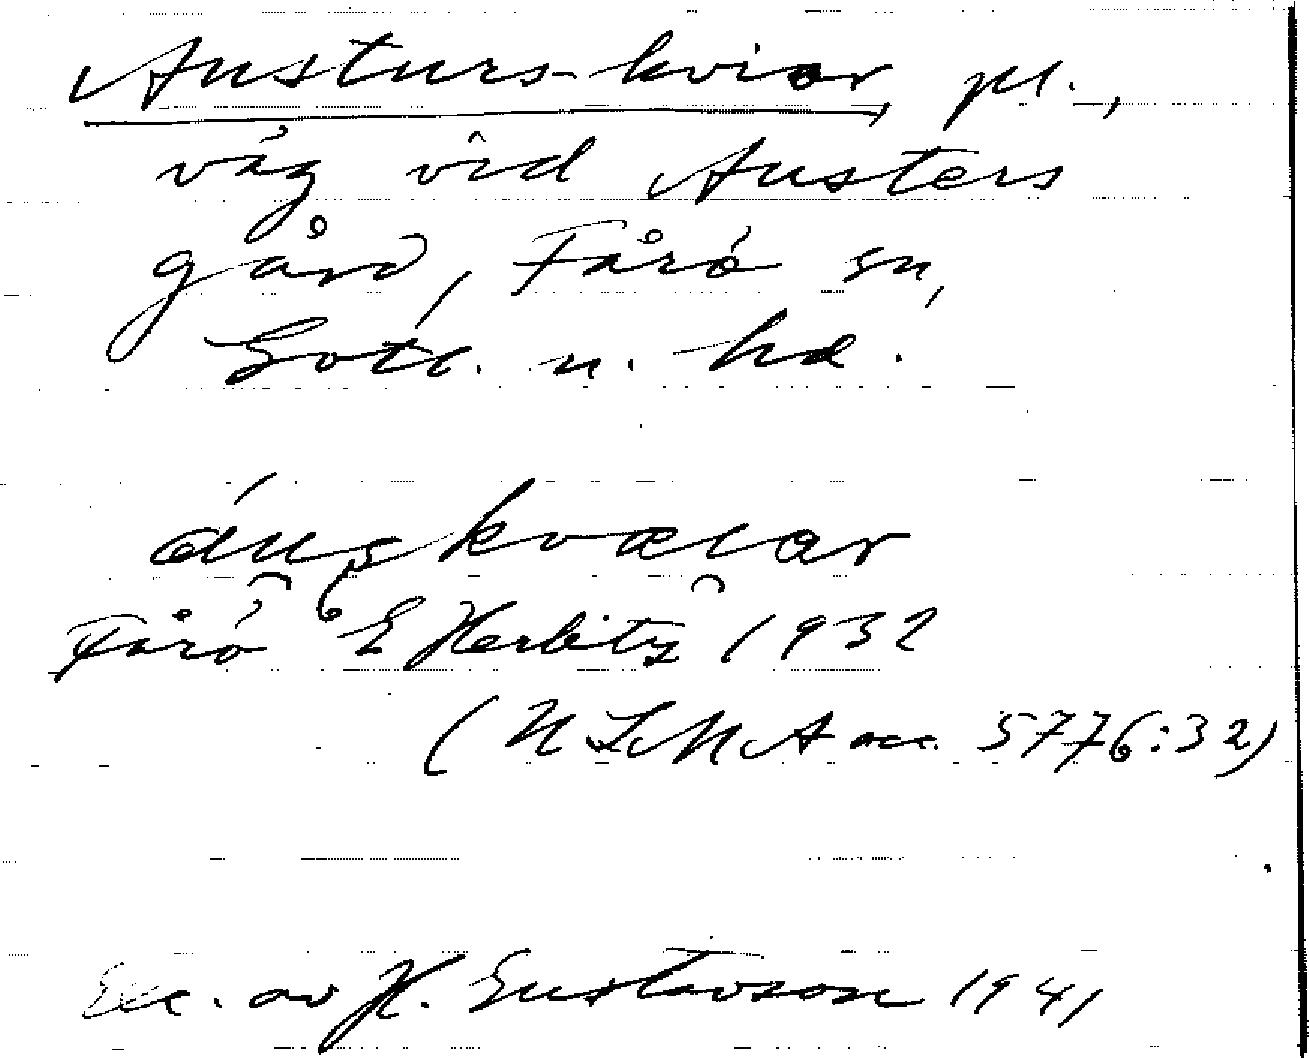 Austurs-kviar, pl.,
väg vid Austers
gård, Fårö sn,
Gotl. n. hd.
ángkvæıar
Fårö E Herlitz 1932
(ULMA acc. 5776:32)
Exc. av H. Gustavson 1941